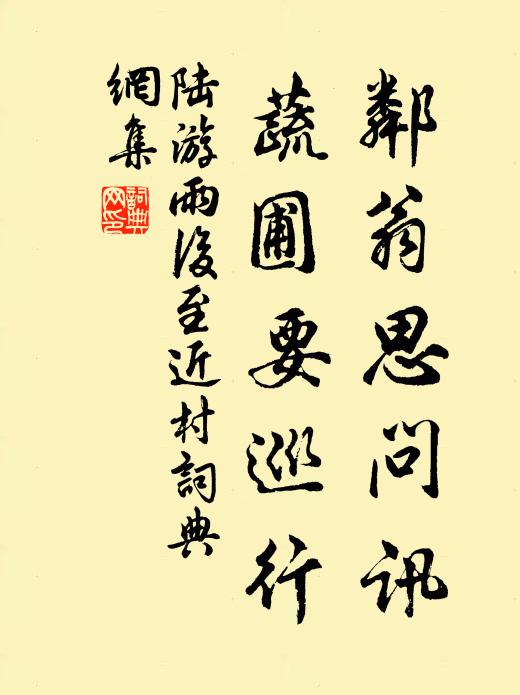 鄰翁思問訊
蔬圃要巡行
陸游雨後至近村詞典
網集
詞典
网印